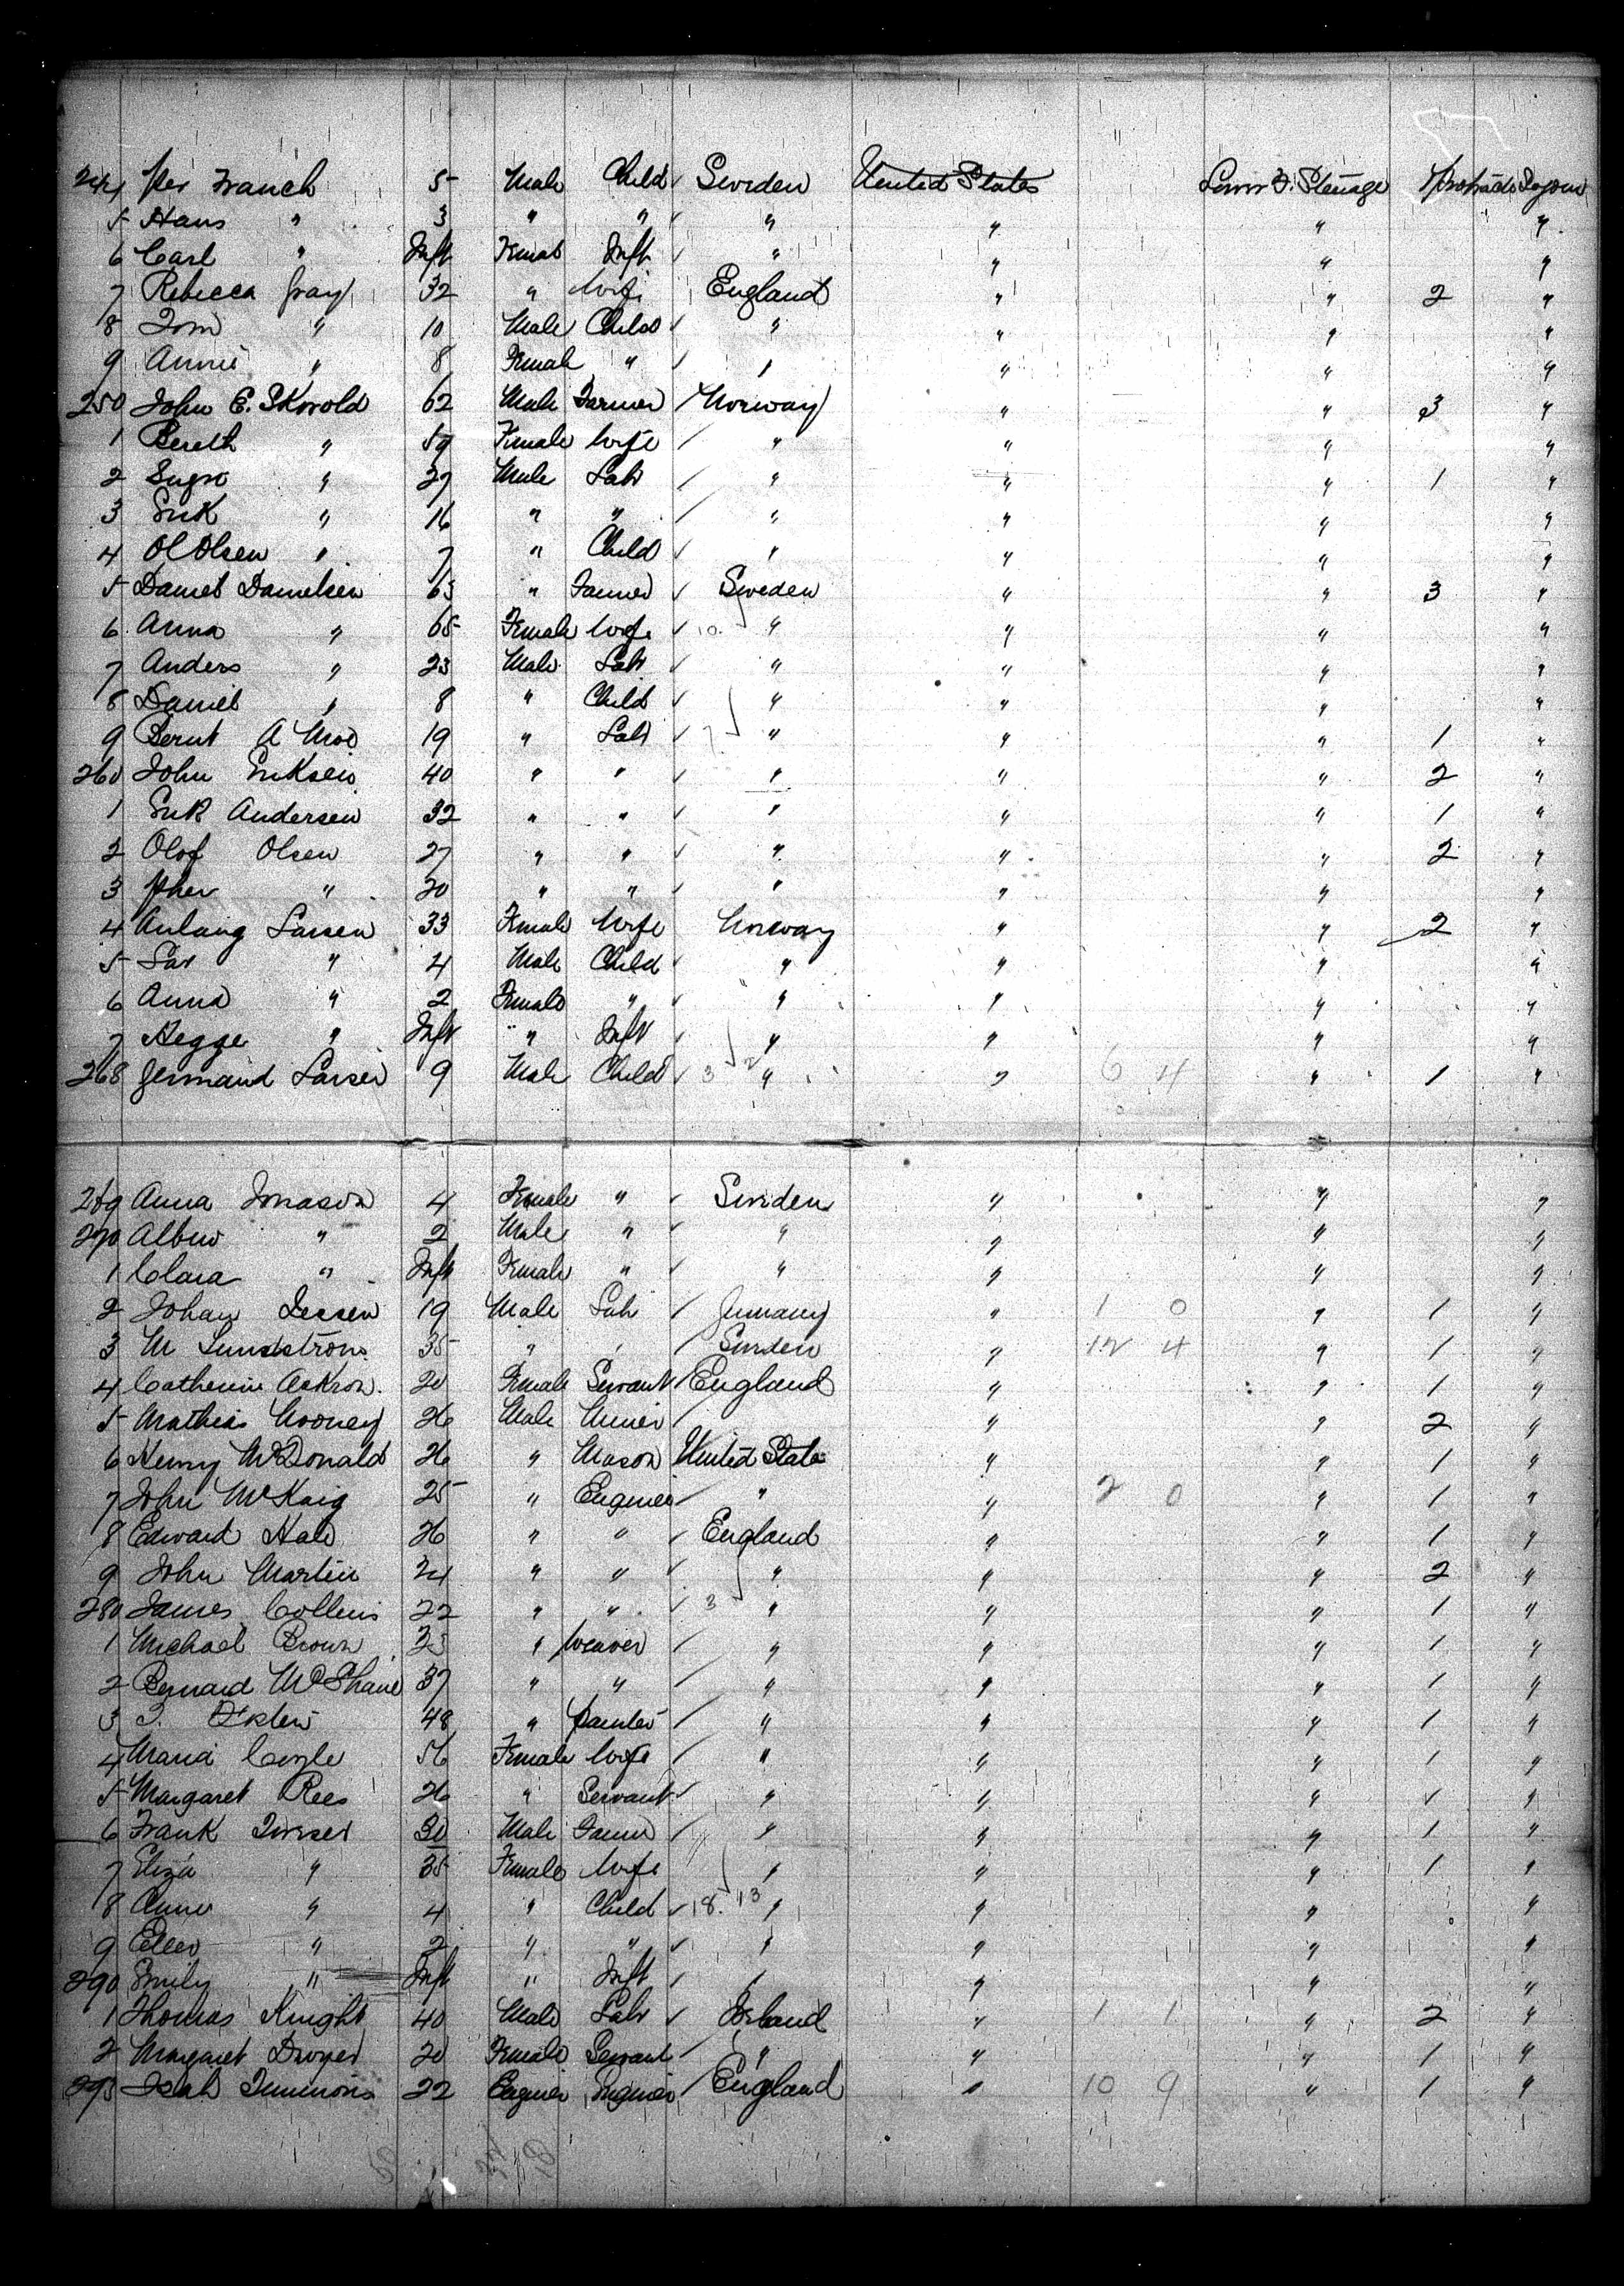 244 Per Franch 5 Male Child ✓ Sweden United States Lower D. Steerage Protracted Sojourn
5 Hans " 3 " " ✓ " " " "
6 Carl " Inft Female Inft ✓ " " " "
7 Rebecca Gray 32 " Wife England " " 2 "
8 Tom " 10 Male Child ✓ " " " "
9 Annie " 8 Female " ✓ " " " "
250 John E. Skorold 62 Male Farmer / Norway " " 3 "
1 Bereth " 59 Female Wife / " " " "
2 " 27 Male Labr / " " " 1 "
3 Erik " 16 " " / " " " "
4 Ol Olsen " 7 " Child ✓ " " " "
5 Daniel Danielsen 63 " Farmer ✓ Sweden " " 3 "
6 Anna " 65 Female Wife ✓ 10 " " " "
7 Anders " 23 Male Labr ✓ " " " "
8 Daniel " 8 " Child ✓ " " " "
9 Bernt A Moe 19 " Labr ✓ 7 " " " 1 "
260 John Eriksen 40 " " ✓ " " " 2 "
1 Erik Andersen 32 " " ✓ " " " 1 "
2 Olof Olsen 27 " " ✓ " " " 2 "
3 Pher " 20 " " ✓ " " " "
4 Larsen 33 Female Wife Norway " " 2 "
5 Lar " 4 Male Child ✓ " " " "
6 Anna " 2 Female " ✓ " " " "
7 Hegge " Inft " Inft ✓ " " " "
268 Larsen 9 Male Child ✓ 3 2 " " 6 4 " 1 "
269 Anna Jonason 4 Female " ✓ Sweden " " "
270 " 2 Male " ✓ " " " "
1 Clara " Inft Female " ✓ " " " "
2 Johan Jessen 19 Male Labr / Germany " 1 0 " 1 "
3 M Lundstrom 35 " " / Sweden " 12 4 " 1 "
4 Catherine Ackron 20 Female Servant / England " " 1 "
5 Mathias Mooney 26 Male Miner / " " 2 "
6 Henry McDonald 26 " Mason United States " " 1 "
7 John McKaig 25 " Engineer / " " 2 0 " 1 "
8 Edward Hale 26 " " ✓ England " " 1 "
9 John Martin 24 " " ✓ " " " 2 "
280 James Collins 22 " " ✓ 3 " " " 1 "
1 Michael Brown 23 " Weaver / " " " 1 "
2 Bernard McShane 37 " " / " " " 1 "
3 48 " Painter / " " " 1 "
4 Maria Coyle 56 Female Wife / " " " 1 "
5 Margaret Rees 26 " Servant ✓ " " " ✓ "
6 Frank 30 Male Farmer / " " " 1 "
7 Eliza " 35 Female Wife " " " 1 "
8 Anne " 4 " Child ✓ 18. 13 " " " "
9 Ellen " 2 " " ✓ " " " "
290 Emily " Inft " Inft / " " " "
1 Thomas Knight 40 Male Labr ✓ Ireland " 1 1 " 2 "
2 Margaret Dwyer 20 Female Servant / " " " 1 "
293 Timmons 22 Engineer Engineer / England " 10 9 " 1 "